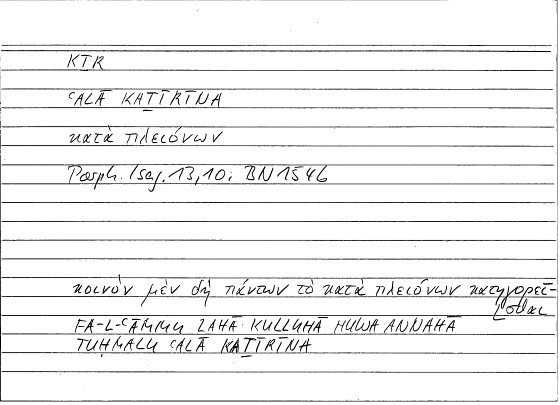 KṮR
ʿALĀ KAṮĪRĪNA
κατὰ πλειόνων
Porph. Isag. 13,10; BN 154b
κοινὸν μὲν δὴ πάντων τὸ κατὰ πλειόνων κατηγορεῖ-
σθαι
FA-L-ʿĀMMU LAHĀ KULLUHĀ HUWA ANNAHĀ
TUḤMALU ʿALĀ KAṮĪRĪNA